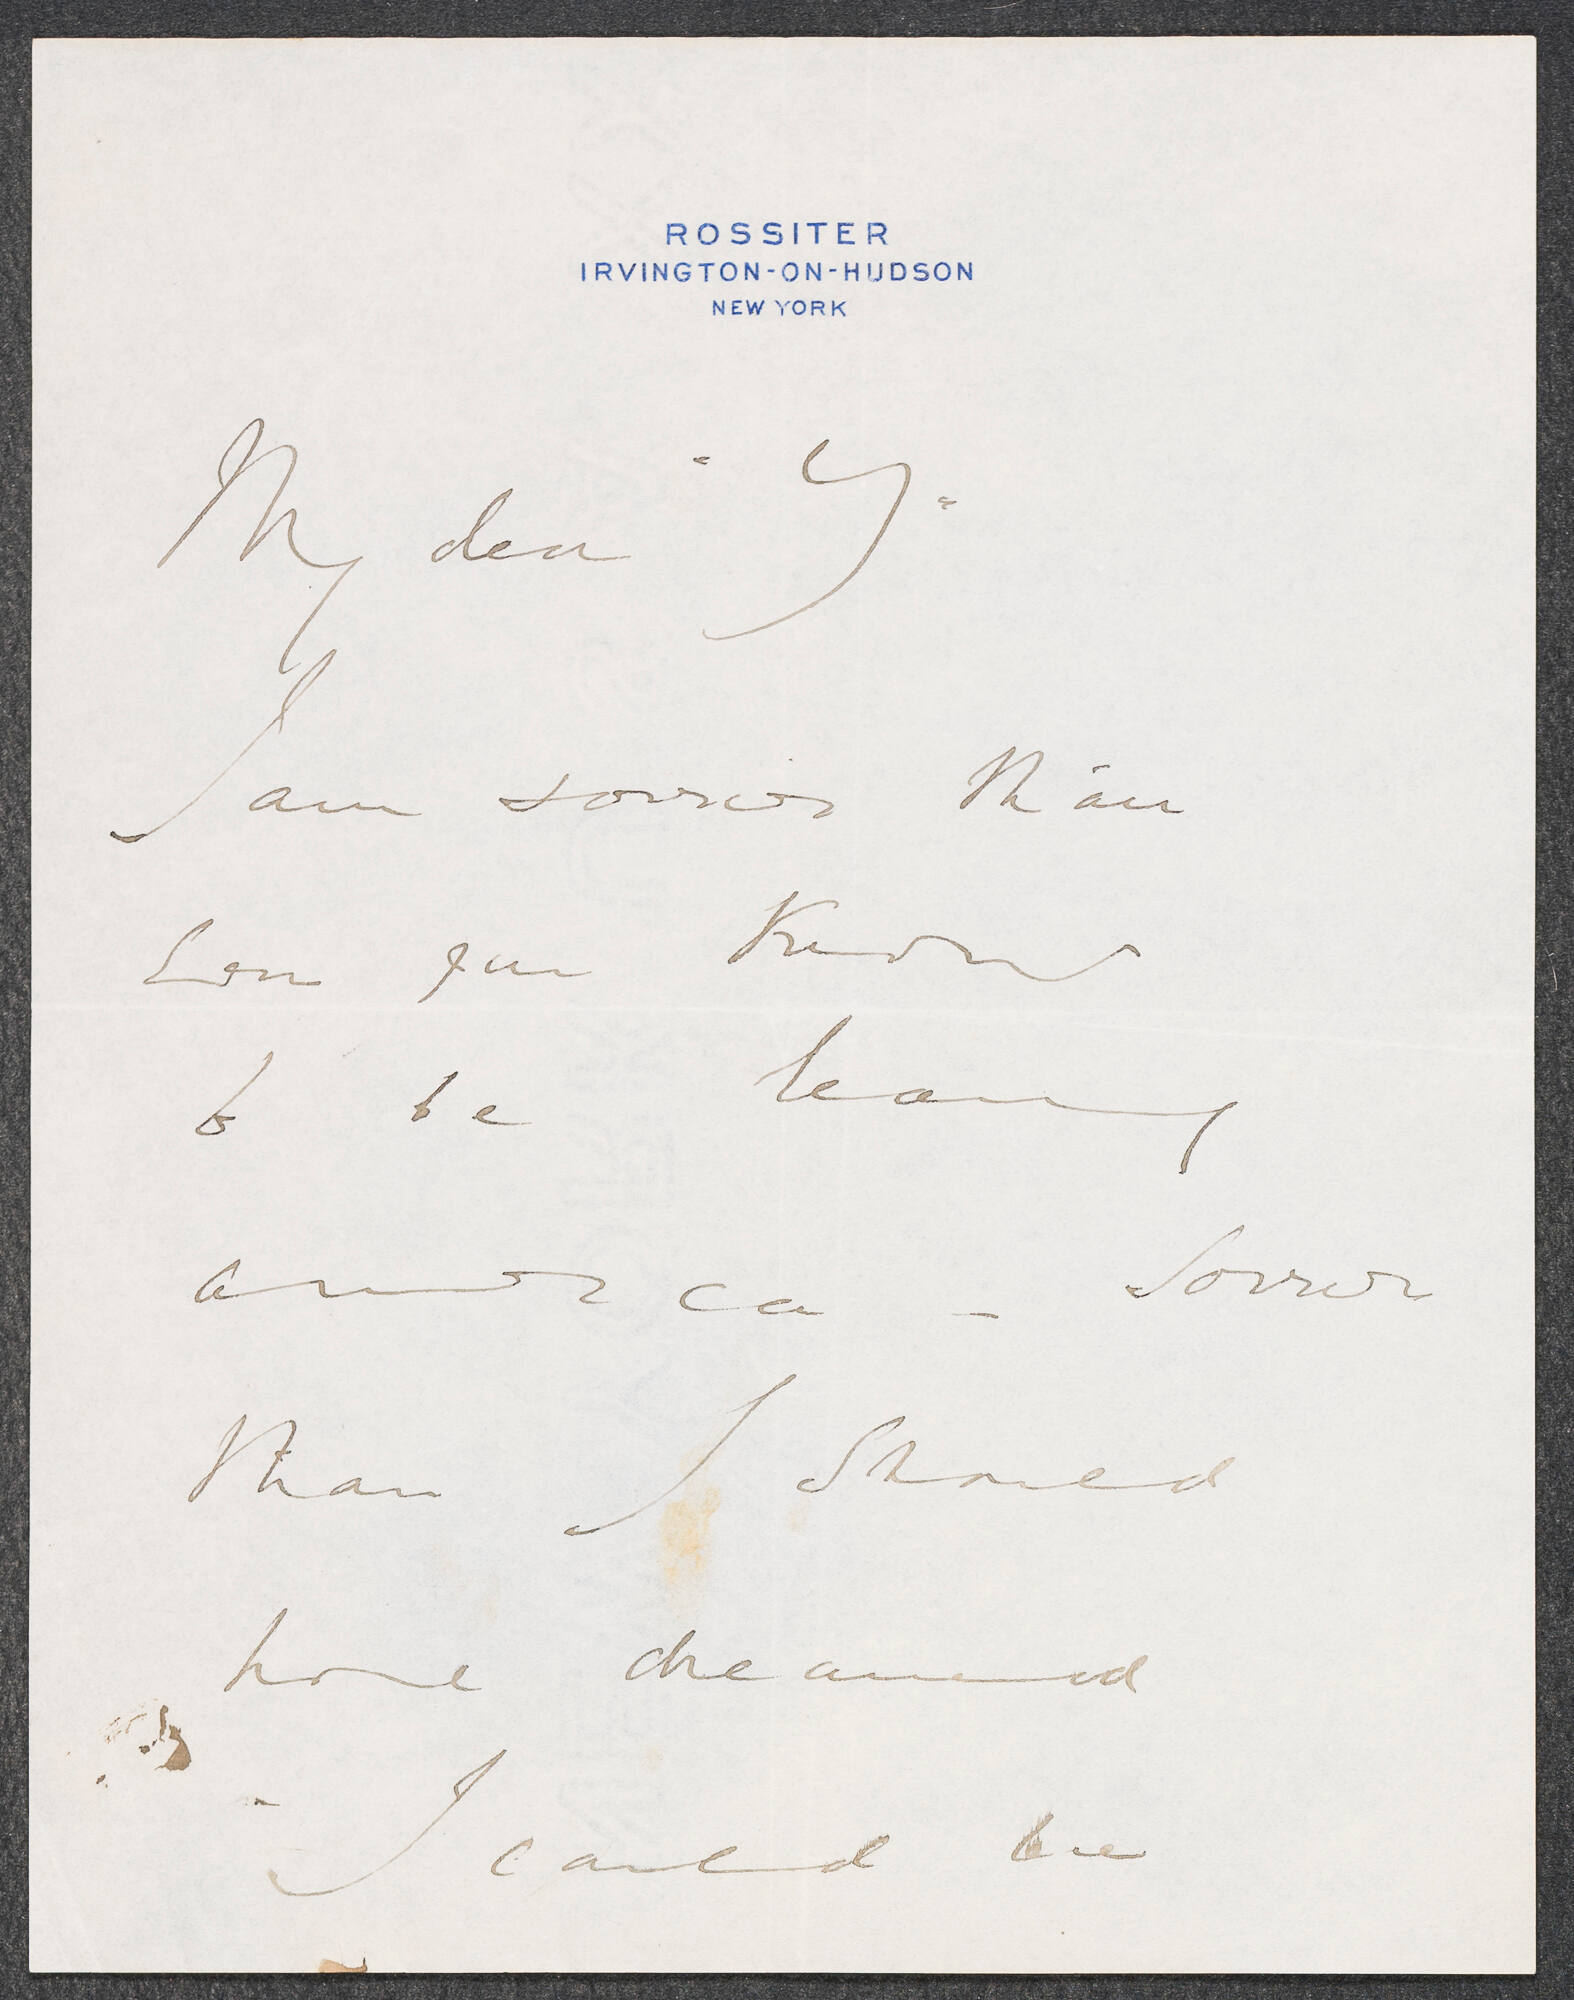 ROSSITER
IRVINGTON-ON-HUDSON
NEW YORK
My dear "Y"
I am sorrier than
even you know
to be leaving
America – sorrier
than I should
have dreamed
– I could be